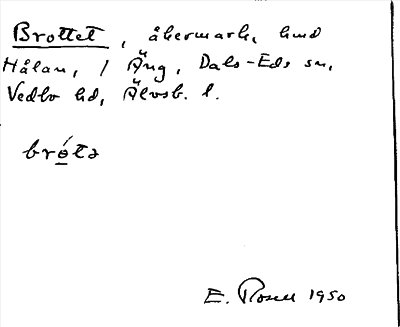 Brottet, åkermark, hmd
Hålan, 1 Äng, Dals-Eds sn,
Vedbo hd, Älvsb. l.
brótə
E. Rosell 1950